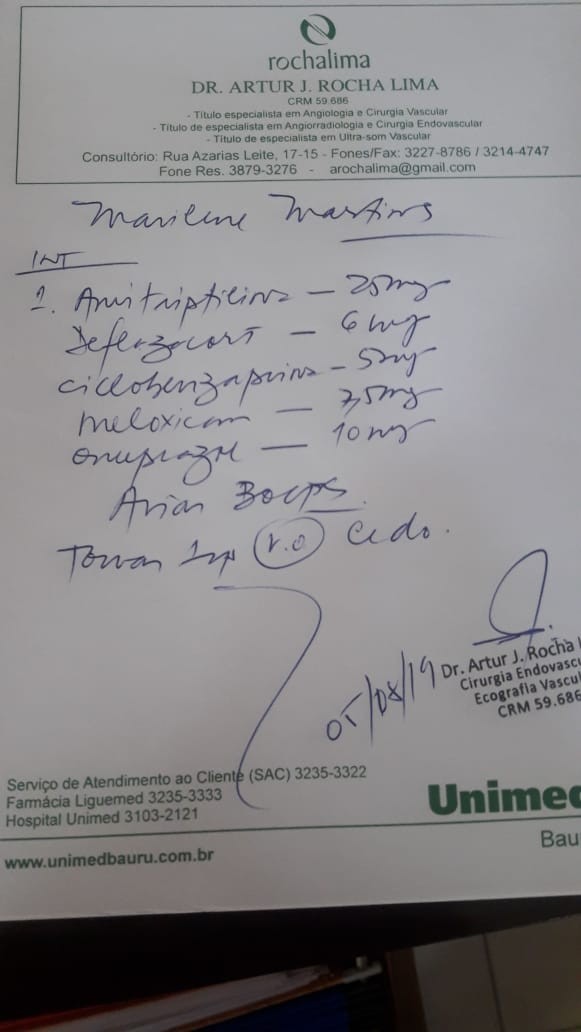 rochalima
DR. ARTUR J. ROCHA LIMA
CRM 59.686
- Título especialista em Angiologia e Cirurgia Vascular
- Título de especialista em Angiorradiologia e Cirurgia Endovascular
- Título de especialista em Ultra-som Vascular
Consultório: Rua Azarias Leite, 17-15 - Fones/Fax: 3227-8786 / 3214-4747
Fone Res. 3879-3276 - arochalima@gmail.com
Marilene Martins
INT
1. Amitriptilina — 25mg
Deflazacort — 6mg
Ciclobenzaprina - 5mg
Meloxicam — 7,5mg
Omeprazol — 10mg
Aviar 30cps.
Tomar 1cp V.O cedo.
05/08/19
Dr. Artur J. Rocha
Cirurgia Endovascu
Ecografia Vascul
CRM 59.686
Serviço de Atendimento ao Cliente (SAC) 3235-3322
Farmácia Liguemed 3235-3333
Hospital Unimed 3103-2121
Unimed
Bau
www.unimedbauru.com.br